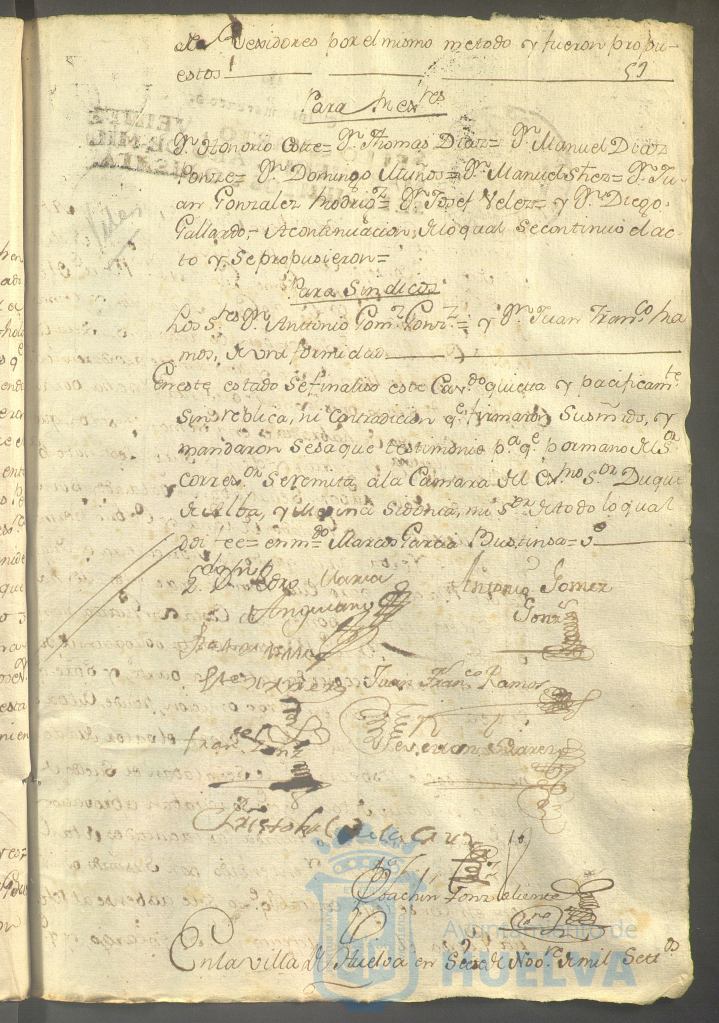 de Rexidores por el mismo metodo y fueron propu-
estos
51
Para Mexres
Dn. Honorio Corte= Dn. Thomas Diaz= Dn. Manuel Diaz
Ponze= Dn. Domingo Muños= Dn. Manuel Shez= Dn. Ju-
an Gonzalez Modrio= Dn. Josef Velez= y Dn. Diego
Gallardo,- A continuacion, de lo qual se continuó el ac-
to y se propusieron=
Para Sindicos
Los Sres Dn. Antonio Gomz Gonz= y Dn. Juan Franco Ra
mos, de uniformidad
En este estado se finaliso este Cavdo quieta y pacificamte
sin replica, ni contradicion qe firmaron Sus mrds, y
mandaron se saque testimonio pa qe por mano del Sor
Correxor se remita, a la Camara del Exmo Sor Duque
de Alba, y Medina Sidonia, mi Sor de todo lo qual
doi fee= enmdo Marcos Garcia Bustinsa= Ve
Ldo Dn Pedro Maria
Anguiano
Antonio Gomez
Gonz
Juan Franco Ramos
Franco Gonz
Severian Suarez
Christobal de la Cruz
Joachin Gonz
Ayuntamiento de
HUELVA
En la villa de Huelva en Seis de Novre de mil Settos